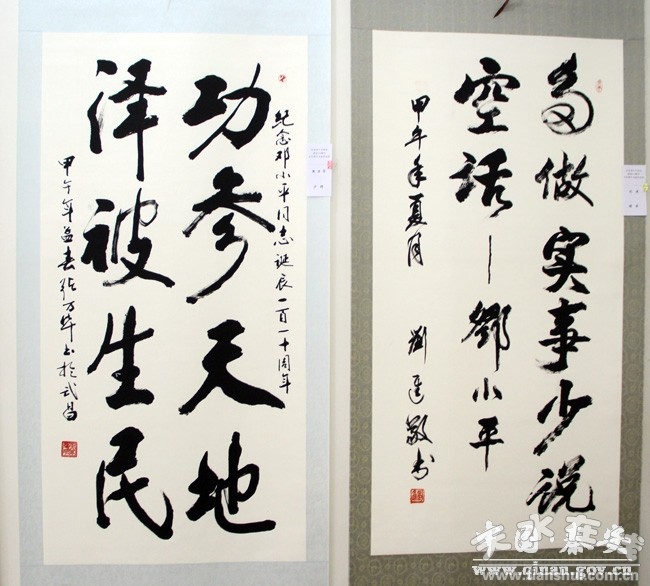 多做实事少说
空话—鄧小平
甲午年夏月
劉 敬书
纪念邓小平同志诞辰一百一十周年
功参天地
泽被生民
甲午年孟春张万 书于武昌
www.qinan.gov.cn